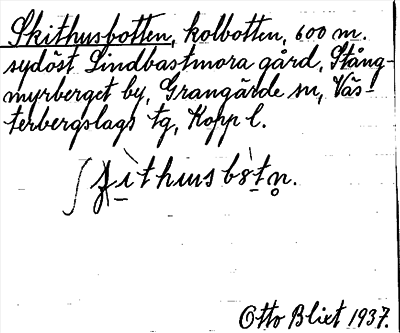 Skithusbotten, kolbotten, 600 m.
sydöst Lindbastmora gård, Stång-
myrberget by, Grangärde sn, Väs-
terbergslags tg, Kopp l.
Otto Blixt 1937.